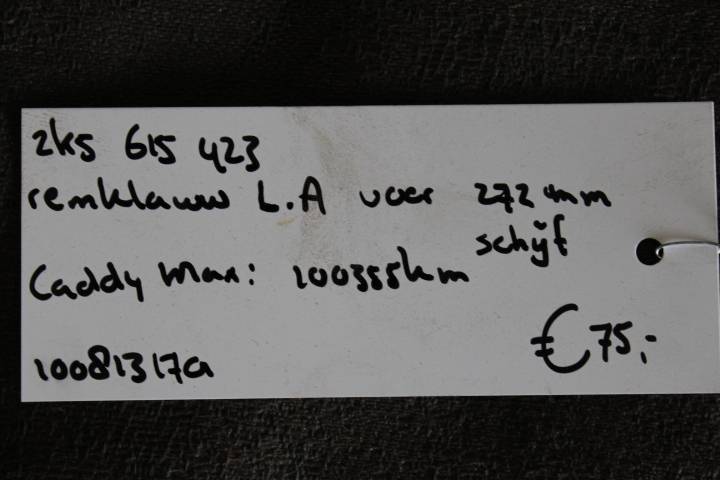 2k5 615 423
remklauw L.A voor 272 mm
schijf
Caddy Maxi: 100355km
10081317a
€75,-